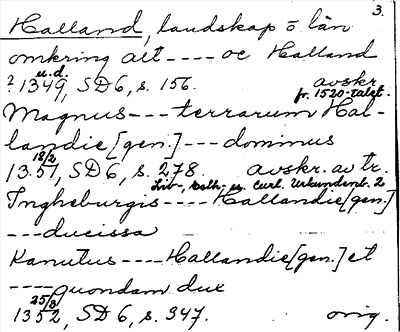 3.
Halland, landskap o län
omkring alt ---- oc Halland
? 1349 u.d., SD 6, s. 156. avskr.
fr. 1520-talet.
Magnus --- terrarum Hal-
landie [gen.] --- dominus
18/2 1351, SD 6, s. 278. avskr. av tr.
Liv-, Esth- u. Curl. Urkundenb. 2
Ingheburgis ---- Hallandie [gen.]
--- ducissa
Kanutus ---- Hallandie [gen.] et
---- quondam dux
25/8 1352, SD 6, s. 347. orig.